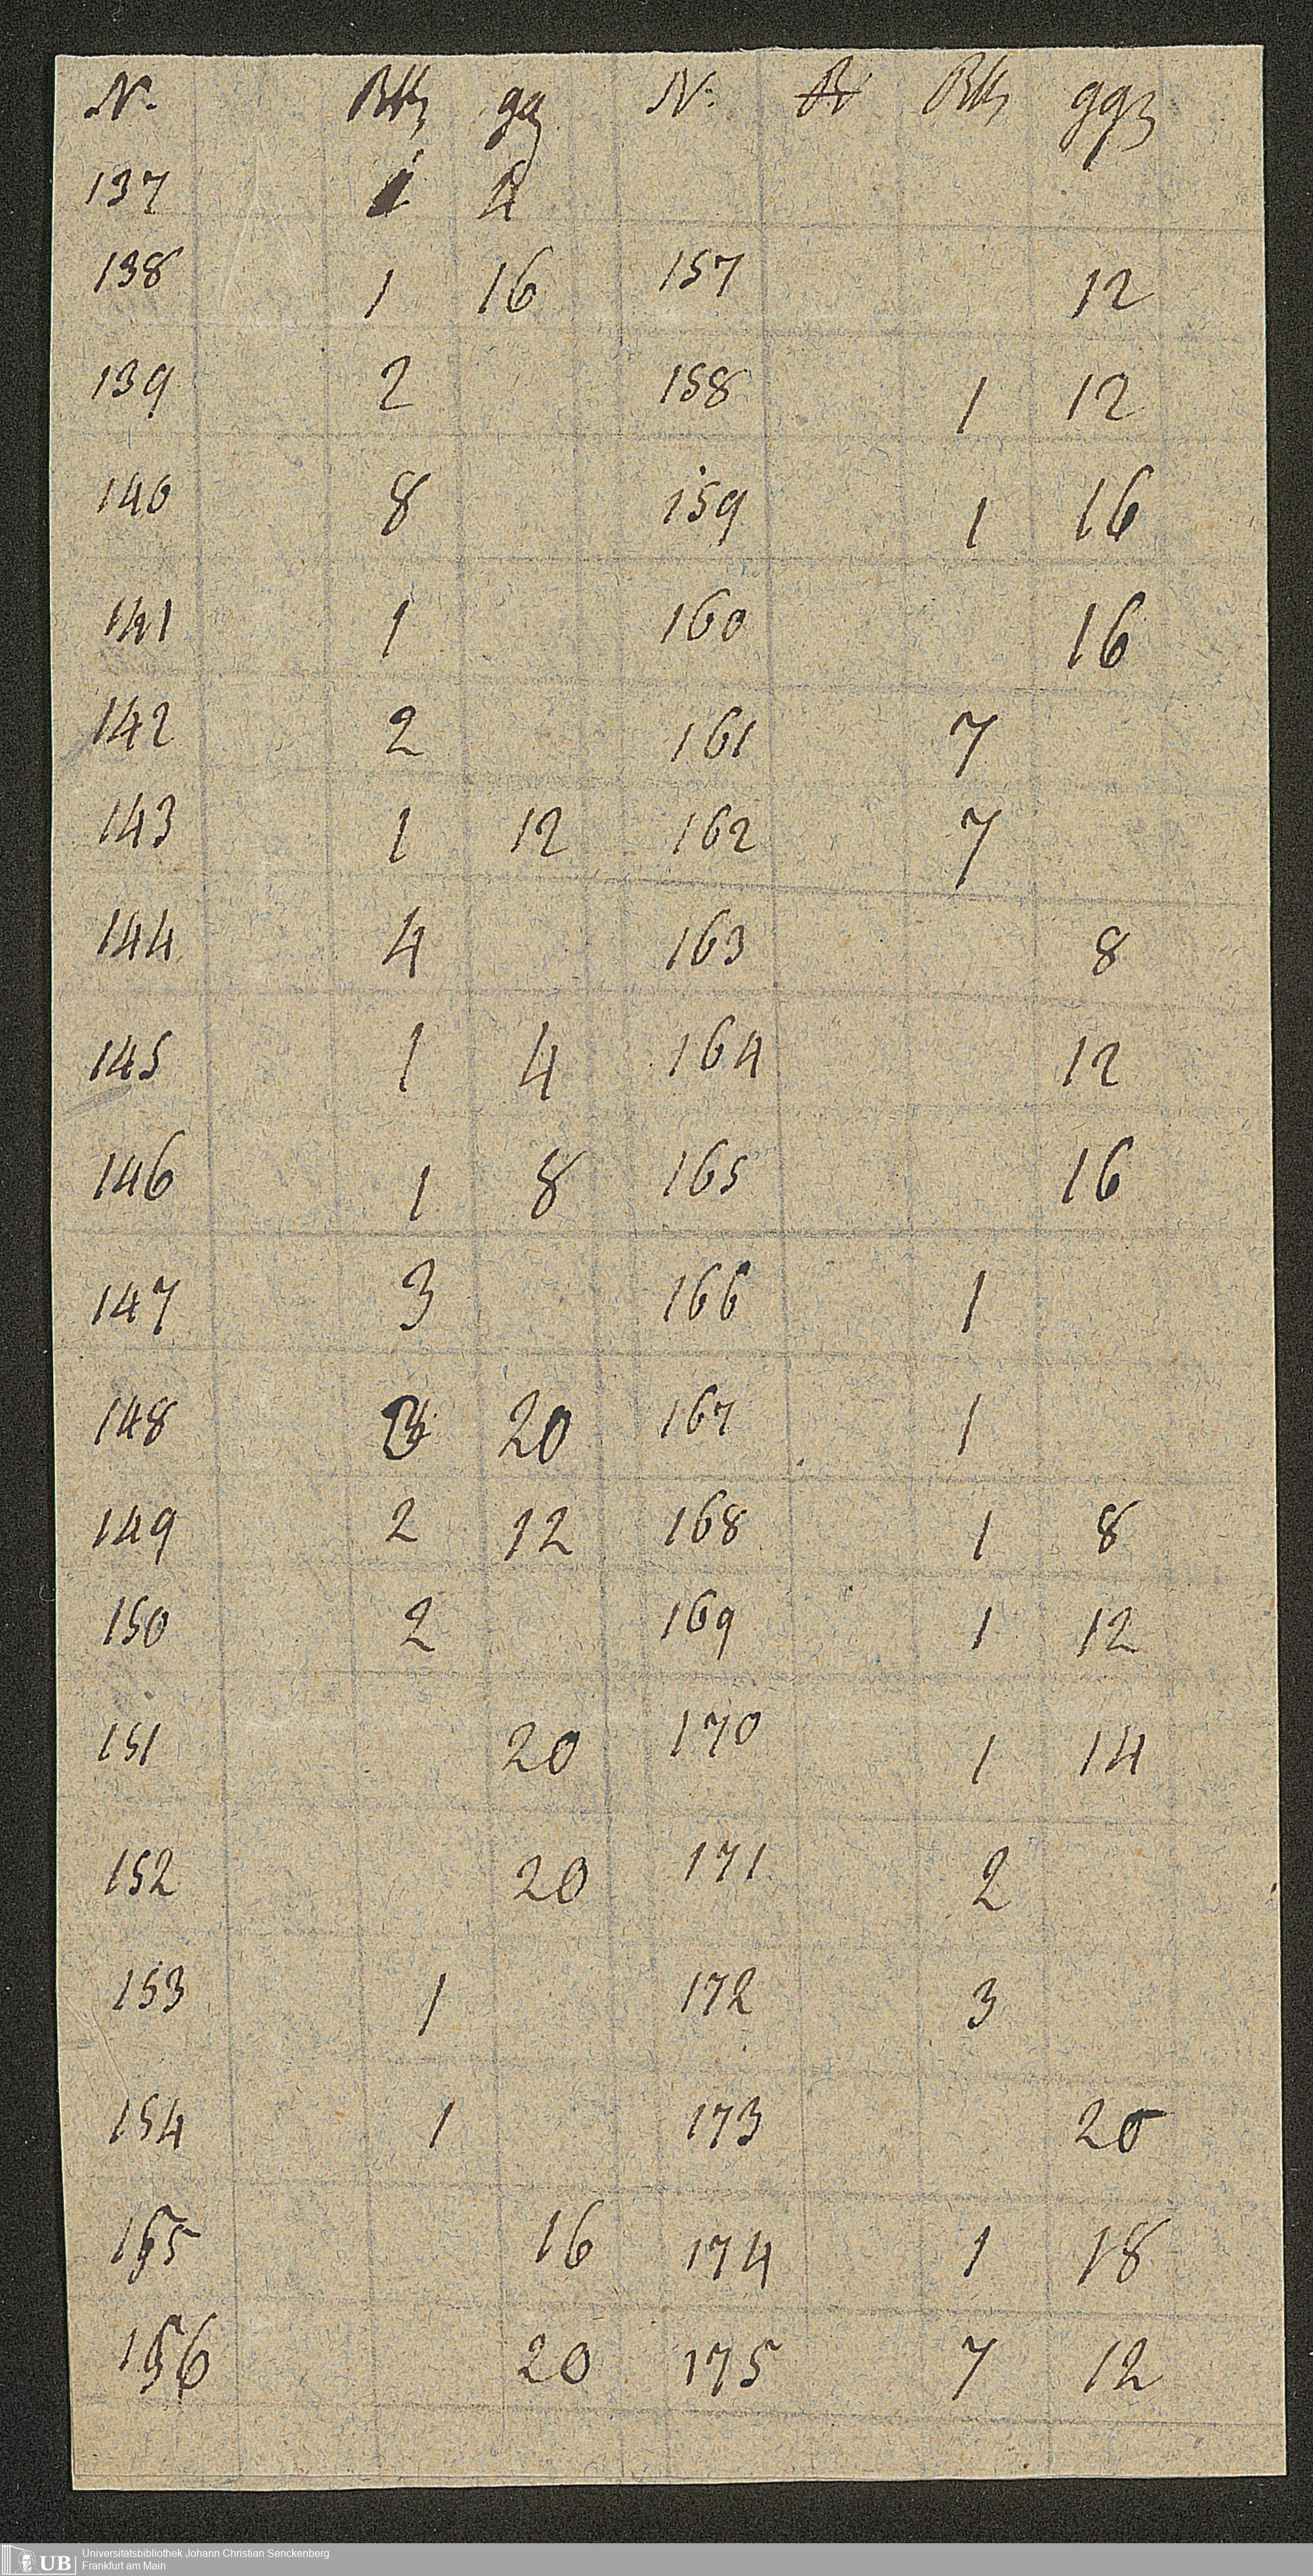 N. Rth gg N. R Rth ggr
137 1
138 1 16 157 12
139 2 158 1 12
140 8 159 1 16
141 1 160 16
142 2 161 7
143 1 12 162 7
144 4 163 8
145 1 4 164 12
146 1 8 165 16
147 3 166 1
148 20 167 1
149 2 12 168 1 8
150 2 169 1 12
151 20 170 1 14
152 20 171 2
153 1 172 3
154 1 173 20
155 16 174 1 18
156 20 175 7 12
UB Universitätsbibliothek Johann Christian Senckenberg
Frankfurt am Main